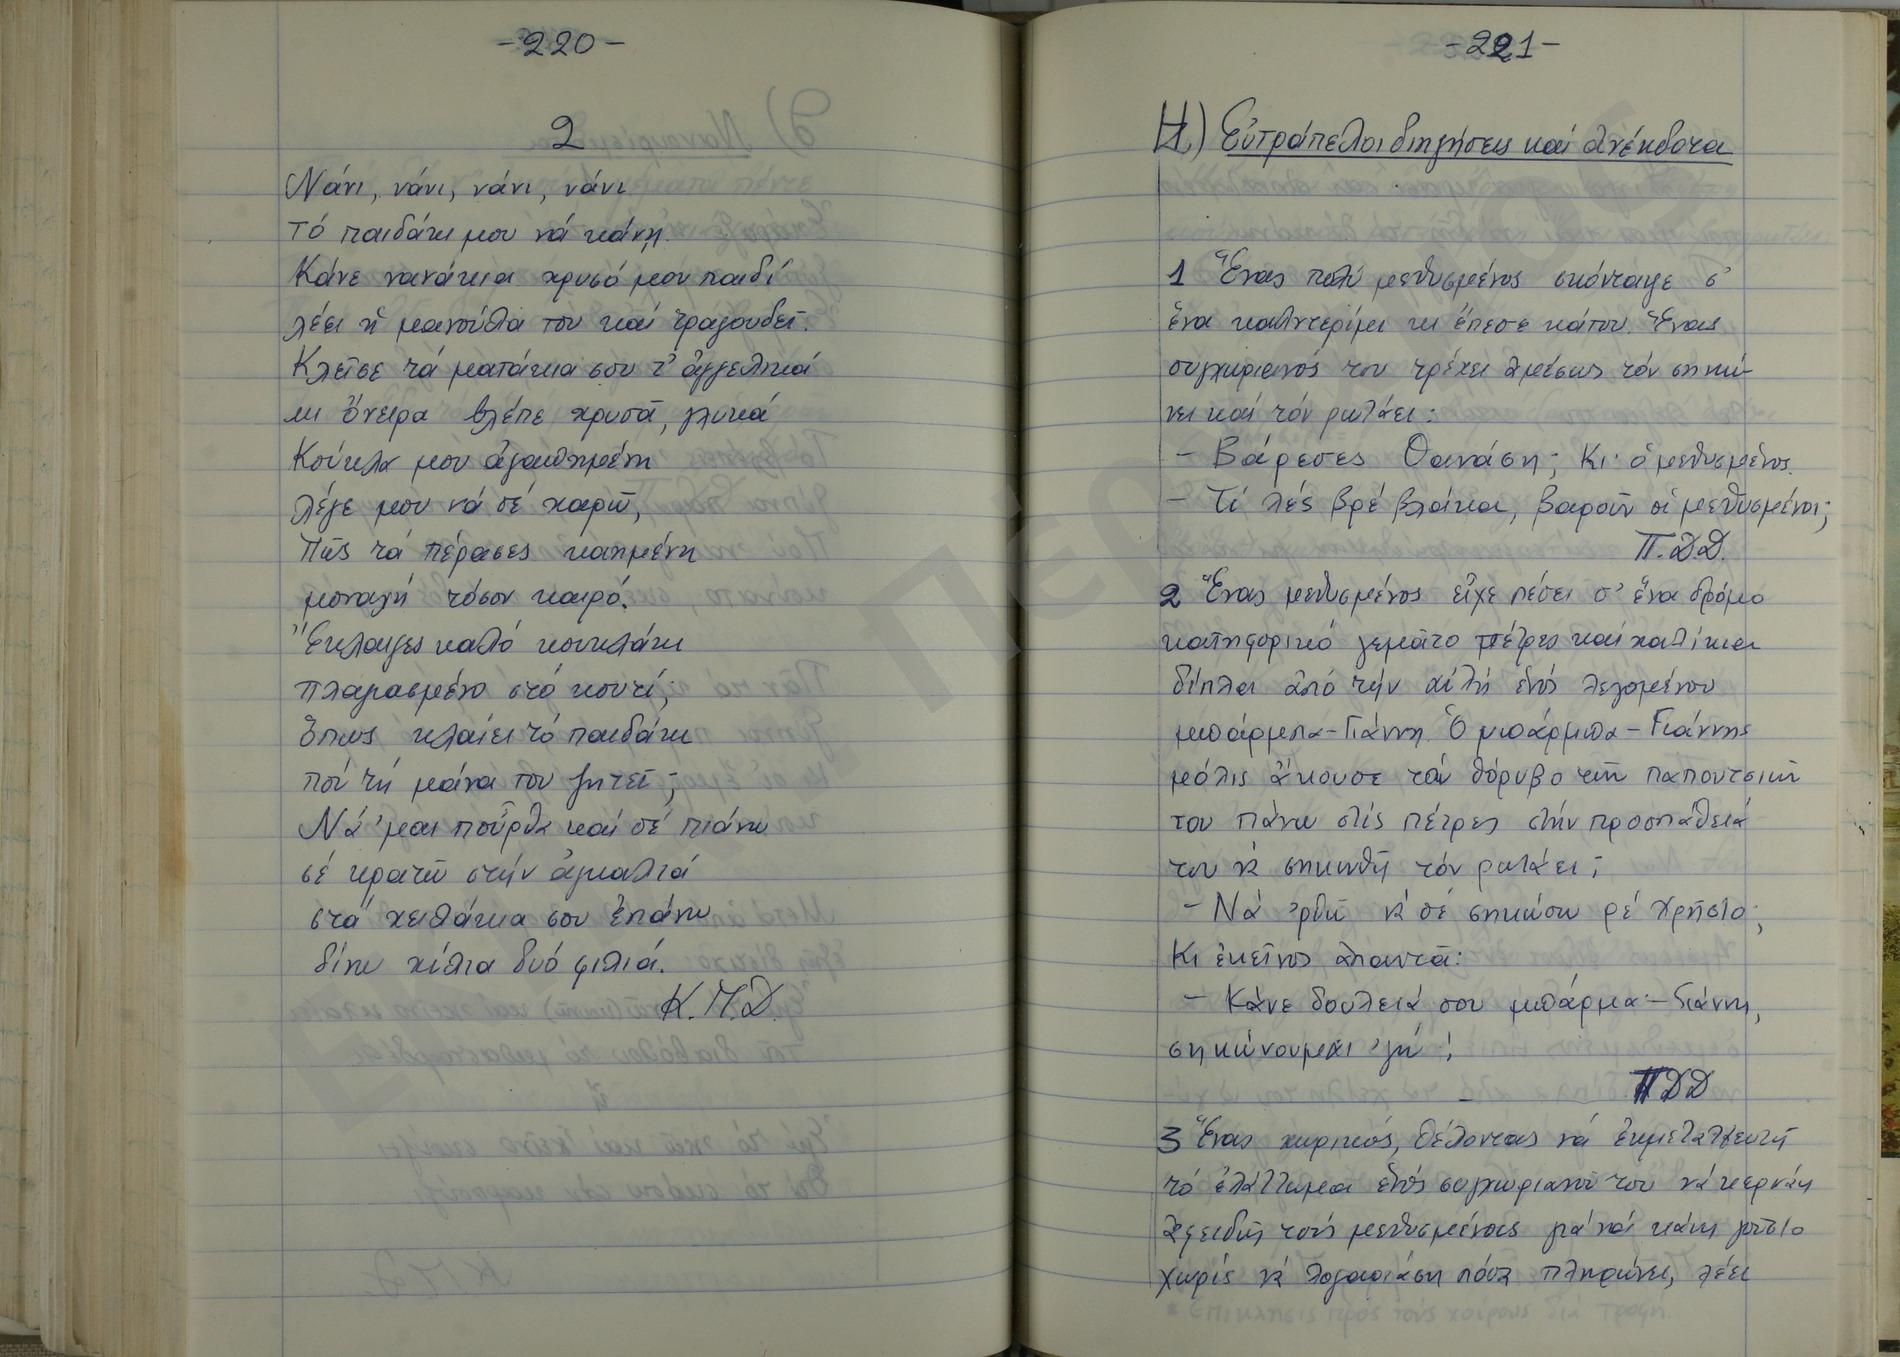 -220-
2
Νάνι, νάνι, νάνι, νάνι
τό παιδάκι μου νά κάνῃ.
Κάνε νανάκια χρυσό μου παιδί
λέει ἡ μανούλα του καί τραγουδεῖ.
Κλεῖσε τά ματάκια σου τ' ἀγγελικά
κι ὄνειρα βλέπε χρυσᾶ, γλυκά
Κούκλα μου ἀγαπημένη
λέγε μου νά σέ χαρῶ,
Πῶς τά πέρασες καημένη
μοναχή τόσον καιρό.
Ἔκλαιγες καλό κουκλάκι
πλαγιασμένο στό κουτί,
ὅπως κλαίει τό παιδάκι
πού τή μάνα του ζητεῖ;
Νά 'μαι ποὖρθα καί σέ πιάνω
σέ κρατῶ στήν ἀγκαλιά
στά χειλάκια σου ἐπάνω
δίνω χίλια δυό φιλιά.
Κ.Π.Δ.
-221-
Η.) Εὐτράπελοι διηγήσεις καί ἀνέκδοτα
1 Ἕνας πολύ μεθυσμένος σκόνταψε σ'
ἕνα καλντερίμι κι ἔπεσε κάτου. Ἕνας
συγχωριανός του τρέχει ἀμέσως τόν σηκώ-
νει καί τόν ρωτάει:
- Βάρεσες Θανάση; Κι ὁ μεθυσμένος.
- Τί λές βρέ βλάκα, βαροῦν οἱ μεθυσμένοι;
Π.Δ.Δ.
2 Ἕνας μεθυσμένος εἶχε πέσει σ' ἕνα δρόμο
κατηφορικό γεμᾶτο πέτρες καί χαλίκια
δίπλα ἀπό τήν αὐλή ἑνός λεγομένου
μπάρμπα-Γιάννη. Ὁ μπάρμπα-Γιάννης
μόλις ἄκουσε τόν θόρυβο τῶν παπουτσιῶν
του πάνω στίς πέτρες στήν προσπάθειά
του νά σηκωθῆ τόν ρωτάει;
- Νά 'ρθῶ νά σέ σηκώσω ρέ Χρῆστο;
Κι ἐκεῖνος ἀπαντᾶ:
- Κάνε δουλειά σου μπάρμα-Γιάννη,
σηκώνουμαι 'γώ!
ΠΔΔ
3 Ἕνας χωρικός, θέλοντας νά ἐκμεταλλευτῆ
τό ἐλάττωμα ἑνός συγχωριανοῦ του νά κερνάῃ
ἀφειδῶς τούς μεθυσμένους γιά νά κάνῃ γοῦστο
χωρίς νά λογαριάσῃ πόσα πληρώνει, λέει